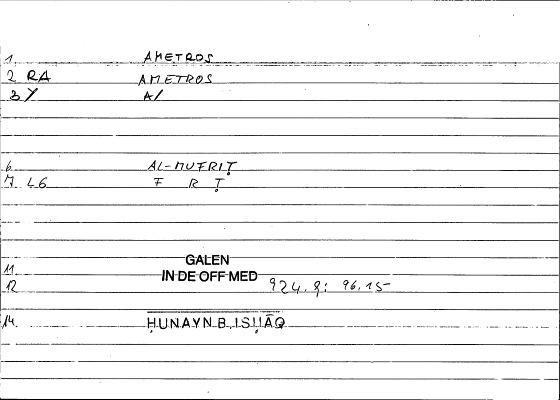 1. AMETROS
2 RA AMETROS
3 Y A/
6 AL-MUFRIṬ
7 L6 F R Ṭ
GALEN
11
IN DE OFF MED
12 924.9: 96.15
14. ḤUNAYN B. ISḤĀQ